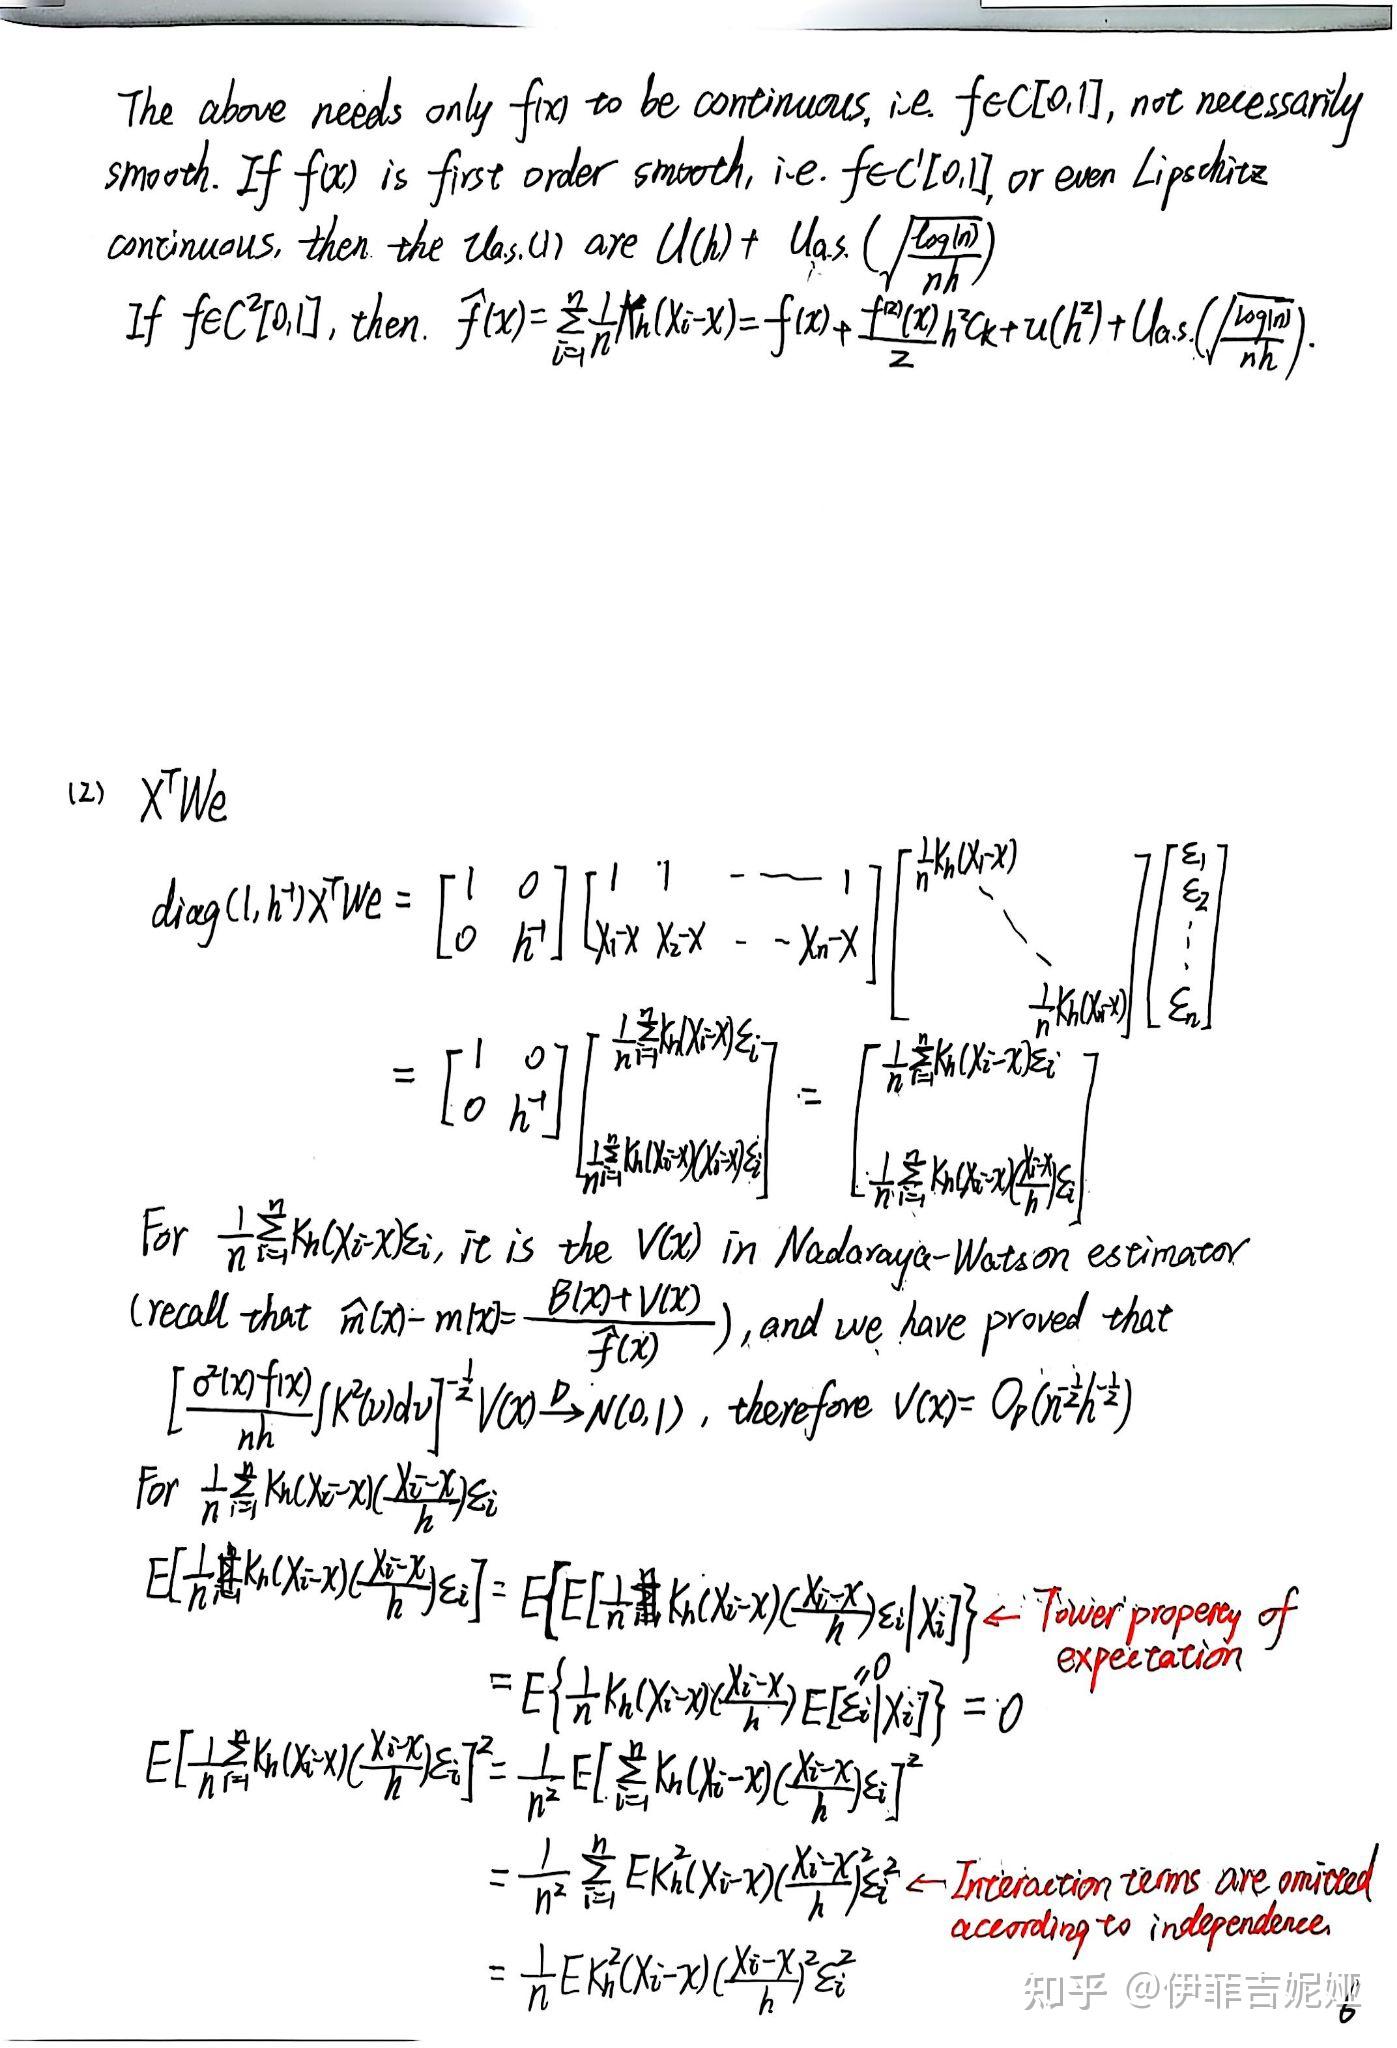 The above needs only f(x) to be continuous, i.e. f∈C[0,1], not necessarily
smooth. If f(x) is first order smooth, i.e. f∈C¹[0,1], or even Lipschitz
continuous, then the U_{a.s.}(1) are U(h) + U_{a.s.}(√(log(n)/nh))
If f∈C²[0,1], then. f̂(x) = Σ_{i=1}^{n} 1/n K_h(X_i-x) = f(x) + f^{(2)}(x)/2 h²C_K + u(h²) + U_{a.s.}(√(log(n)/nh)).
(2) XᵀWe
diag(1, h⁻¹)XᵀWe = [1 0; 0 h⁻¹] [1 1 ... 1; X₁-x X₂-x ... X_n-x] [1/n K_h(X₁-x) ... 1/n K_h(X_n-x)] [ε₁ ε₂ ... ε_n]
= [1 0; 0 h⁻¹] [1/n Σ_{i=1}^{n} K_h(X_i-x)ε_i; 1/n Σ_{i=1}^{n} K_h(X_i-x)(X_i-x)ε_i] = [1/n Σ_{i=1}^{n} K_h(X_i-x)ε_i; 1/n Σ_{i=1}^{n} K_h(X_i-x)((X_i-x)/h)ε_i]
For 1/n Σ_{i=1}^{n} K_h(X_i-x)ε_i, it is the V(x) in Nadaraya-Watson estimator
(recall that m̂(x) - m(x) = (B(x)+V(x))/f̂(x)), and we have proved that
[σ²(x)f(x)/nh ∫K²(v)dv]^{-1/2} V(x) →^D N(0,1), therefore V(x) = O_p(n^{-1/2}h^{-1/2})
For 1/n Σ_{i=1}^{n} K_h(X_i-x)((X_i-x)/h)ε_i
E[1/n K_h(X_i-x)((X_i-x)/h)ε_i] = E{E[1/n K_h(X_i-x)((X_i-x)/h)ε_i|X_i]} ← Tower property of
expectation
= E{1/n K_h(X_i-x)((X_i-x)/h) E[ε_i|X_i]} = 0
"0
E[1/n Σ_{i=1}^{n} K_h(X_i-x)((X_i-x)/h)ε_i]² = 1/n² E[Σ_{i=1}^{n} K_h(X_i-x)((X_i-x)/h)ε_i]²
= 1/n² Σ_{i=1}^{n} EK_h²(X_i-x)((X_i-x)/h)²ε_i² ← Interaction terms are omitted
according to independence.
= 1/n EK_h²(X_i-x)((X_i-x)/h)²ε_i²
知乎 @伊菲吉妮娅
6